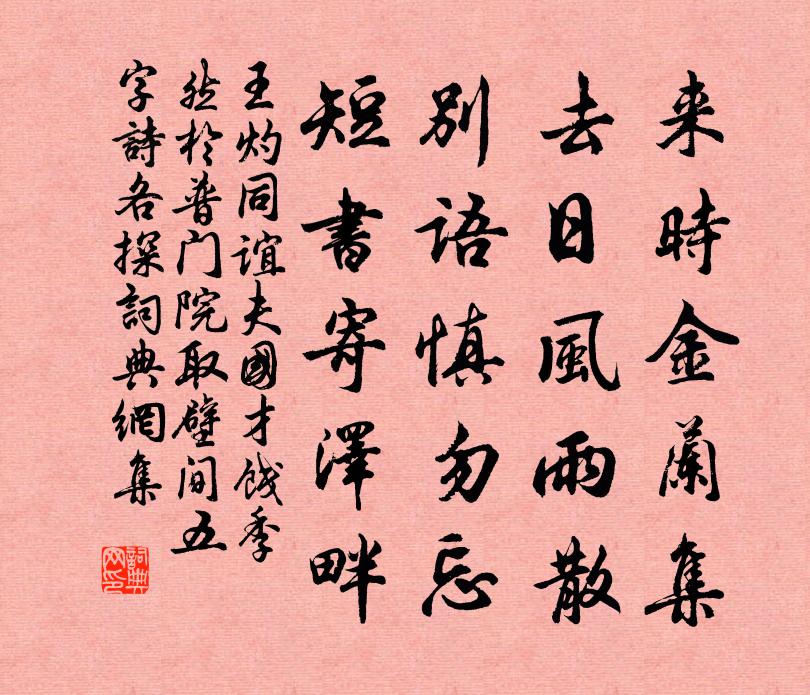 来時金蘭集
去日風雨散
別語慎勿忘
短書寄澤畔
王灼同誼夫國才餞季
然於普门院取壁间五
字詩各探詞典網集
詞典網印